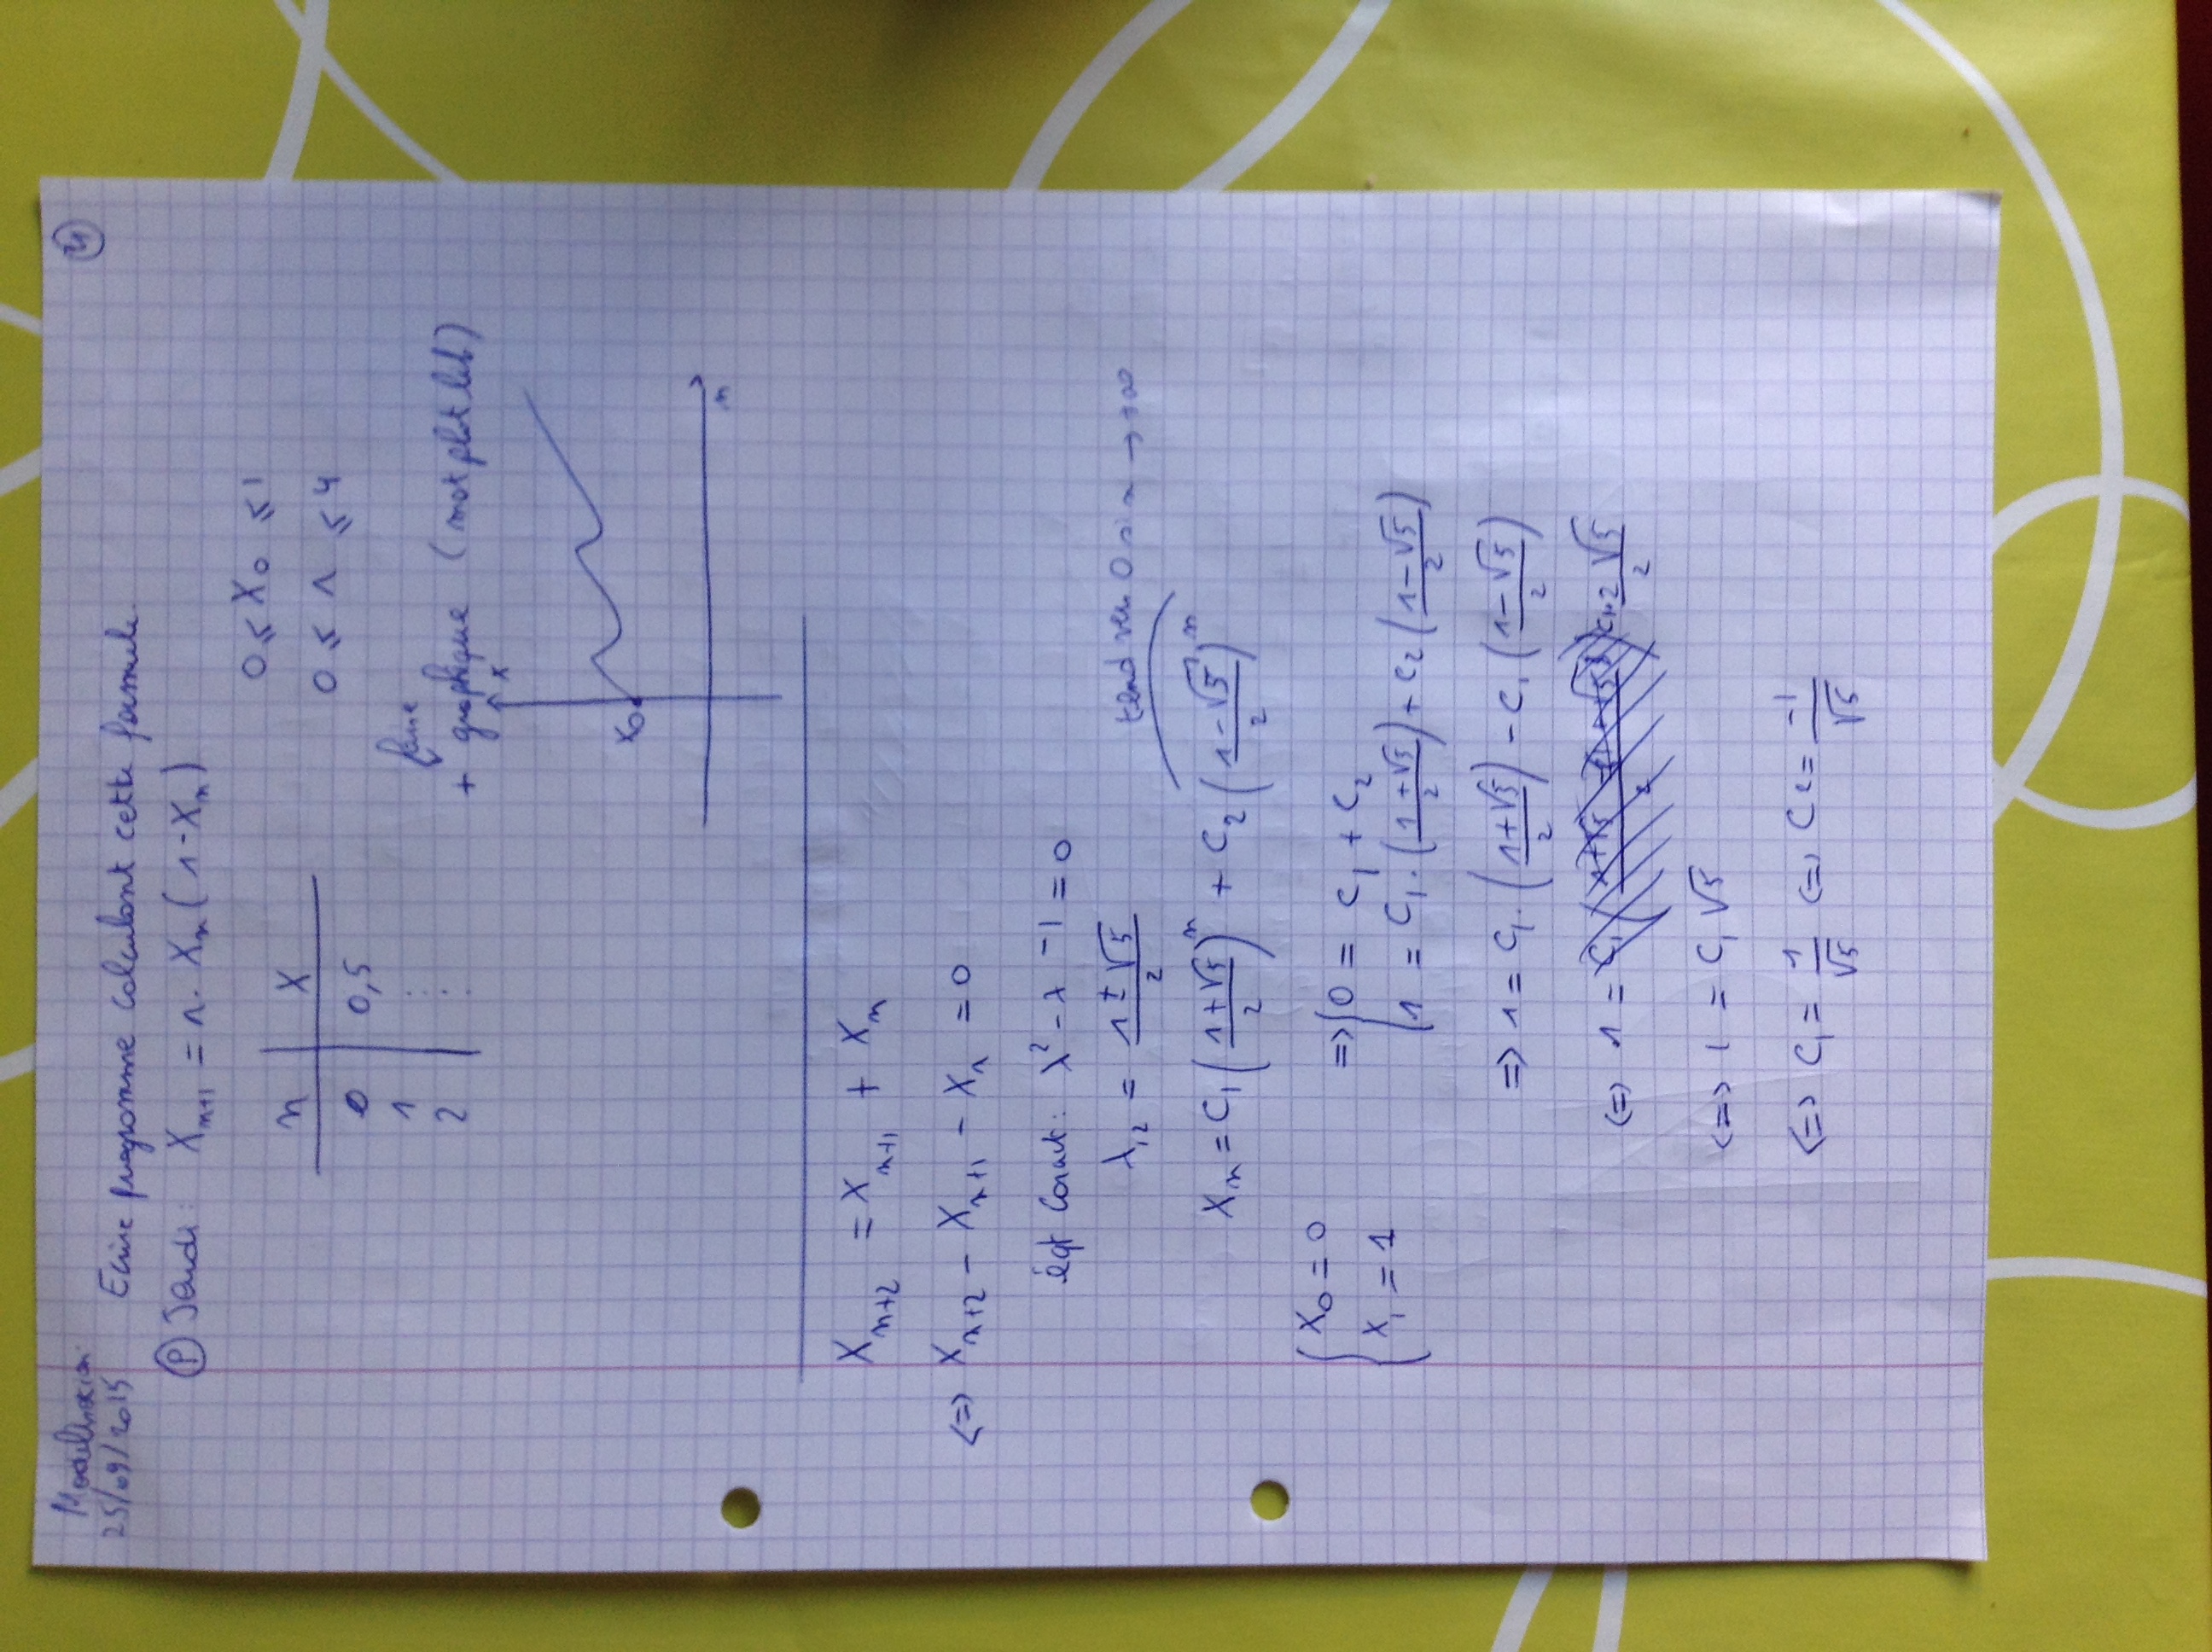 Modélisation
25/09/2015
21
Ecrire programme calculant cette formule
Ⓟ Jeudi : X_{n+1} = r · X_n (1 - X_n)
0 ≤ X_0 ≤ 1
0 ≤ r ≤ 4
n X
0 0,5
1 :
2 :
faire
+ graphique (mat plot lib)
x
X_0
n
X_{n+2} = X_{n+1} + X_n
<=> X_{n+2} - X_{n+1} - X_n = 0
éqt caract : λ² - λ - 1 = 0
λ_{12} = (1 ± √5)/2
tend vers 0 si n → +∞
X_n = C_1 ((1+√5)/2)^n + C_2 ((1-√5)/2)^n
{ X_0 = 0 => { 0 = C_1 + C_2
X_1 = 1 1 = C_1 · ((1+√5)/2) + C_2 ((1-√5)/2)
=> 1 = C_1 · ((1+√5)/2) - C_1 ((1-√5)/2)
<=> 1 = C_1 2√5/2
<=> 1 = C_1 √5
<=> C_1 = 1/√5 <=> C_2 = -1/√5